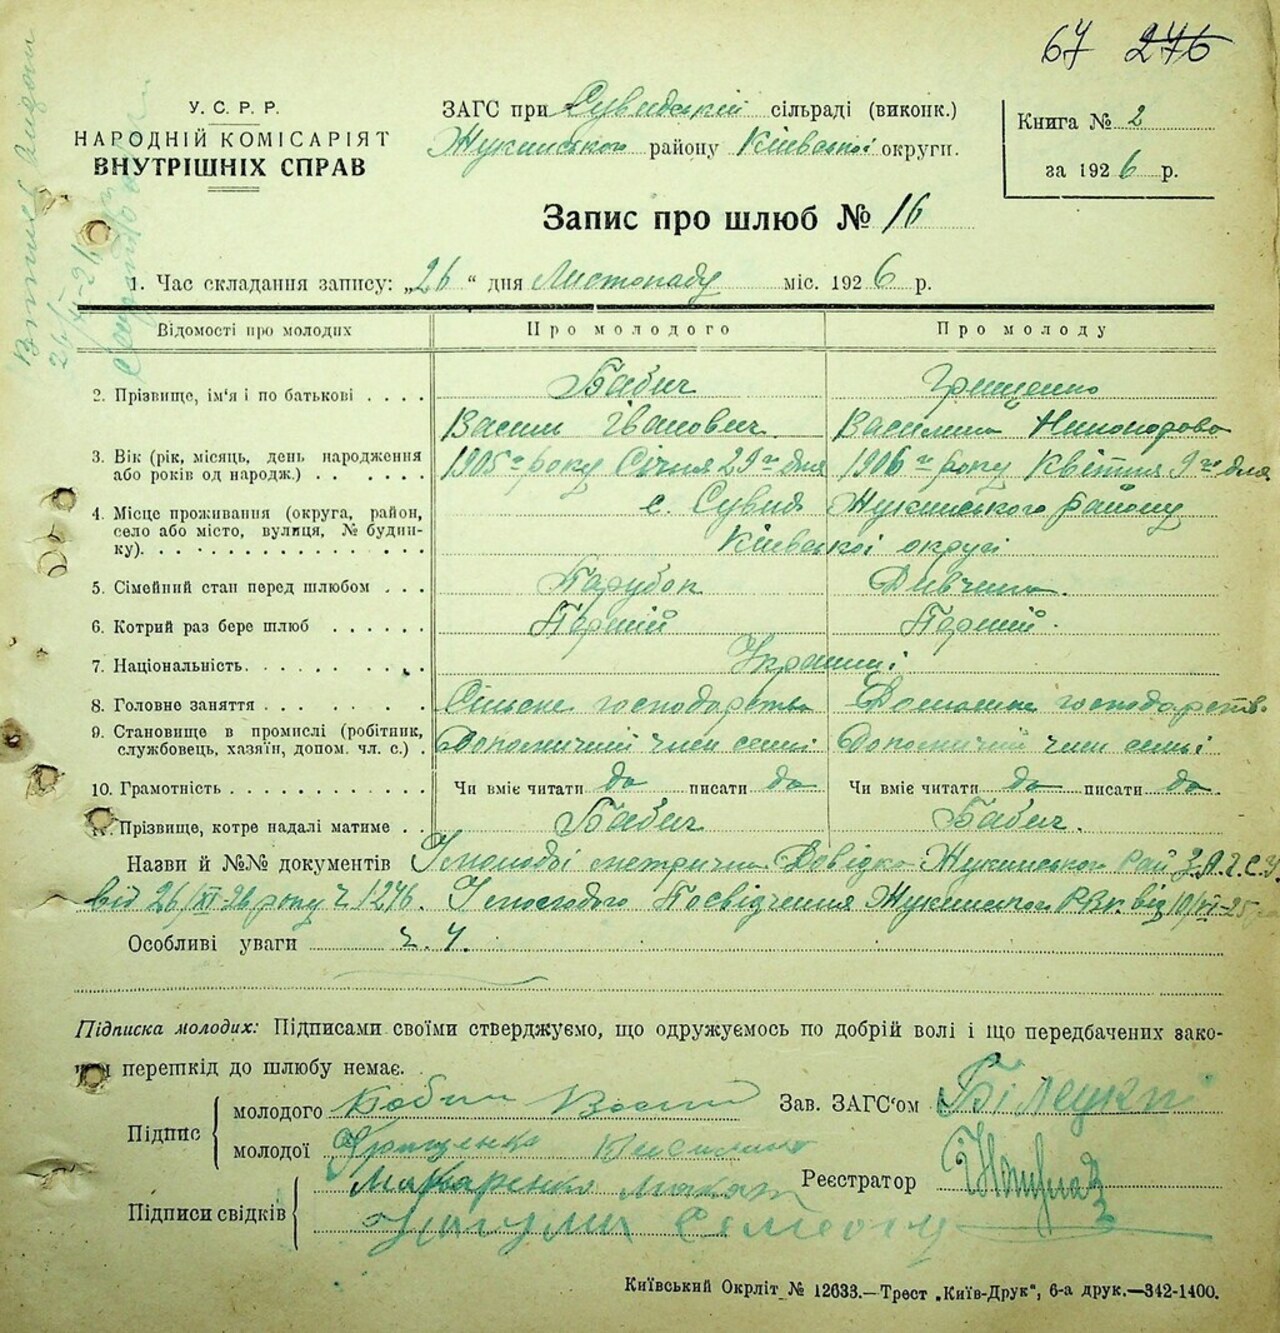 67 276
У. С. Р. Р.
НАРОДНІЙ КОМІСАРІЯТ
ВНУТРІШНІХ СПРАВ
ЗАГС при Сувидській сільраді (виконк.)
Жукинського району Київської округи.
Книга № 2
за 1926 р.
Запис про шлюб № 16
1. Час складання запису: „26" дня Листопаду міс. 1926 р.
Відомості про молодих Про молодого Про молоду
2. Прізвище, ім'я і по батькові . . . . Бабич Грищенко
Василь Іванович Василина Никонорово
3. Вік (рік, місяць, день народження або років од народж.) . . . . . . 1905го року Січня 29го дня 1906го року Квітня 9го дня
4. Місце проживання (округа, район, село або місто, вулиця, № будинку). с. Сувид Жукинського району
Київської округи
5. Сімейний стан перед шлюбом . . . Парубок Дивчина.
6. Котрий раз бере шлюб . . . . . . Перший Перший.
7. Національність. . . . . . . . . . Українці
8. Головне заняття . . . . . . . . . Сільське господарство Домашнє господарств.
9. Становище в промислі (робітник, службовець, хазяїн, допом. чл. с.) . Допомічний член семьі Допомічний член семьі
10. Грамотність . . . . . . . . . . . . Чи вміє читати да писати да Чи вміє читати да писати да
Прізвище, котре надалі матиме . . Бабич Бабич.
Назви й №№ документів У молодої метрична Довідка Жукинського Рай З.А.Г.С.У.
від 26/XI-26 року ч. 1276. У молодого Посвідчення Жукинського РВК. від 10/VI-25
Особливі уваги
Підписка молодих: Підписами своїми стверджуємо, що одружуємось по добрій волі і що передбачених зако-
перешкід до шлюбу немає.
Підпис молодого Бабич Зав. ЗАГС'ом Білецкий
молодої Грищенко Василина
Підписи свідків Макаренко Реєстратор
Київський Окрліт № 12633.—Трест „Київ-Друк", 6-а друк.—342-1400.